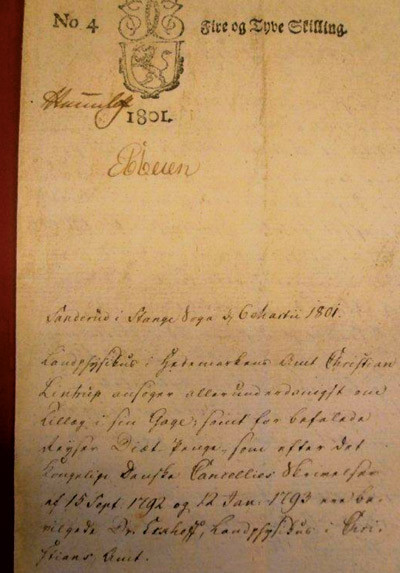 No 4
Fire og Tyve Skilling.
1801.
Sanderud i Stange Sogn d. 6 Martii 1801.
Landphysicus i Hedemarkens Amt Christian
Lintrup ansøger allerunderdanigst om
Tillæg i sin Gage, samt for befalede
Reyser Diæt Penge, som efter det
Kongelige Danske Cancellies Skrivelser
af 15 Sept. 1792 og 12 Jan. 1793 ere be-
vilgede Dr. Landphysicus i Chri-
stians Amt.